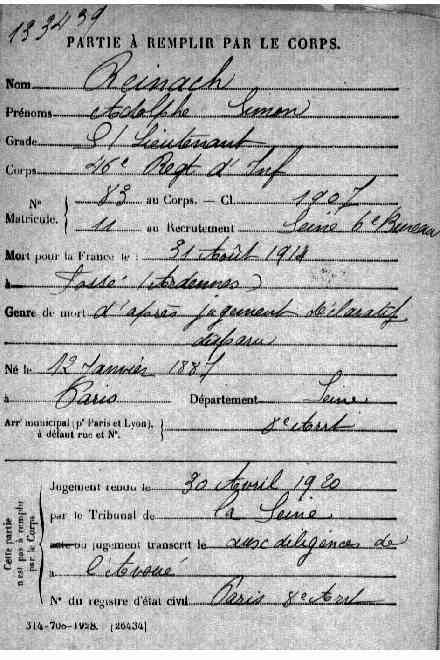 133439
PARTIE À REMPLIR PAR LE CORPS.
Nom Reinach
Prénoms Adolphe Simon
Grade S/ Lieutenant
Corps 46e Regt d'Inf
N° Matricule. { 83 au Corps. — Cl. 1907
11 au Recrutement Seine 6e Bureau
Mort pour la France le : 31 Août 1914
à Fossé (Ardennes)
Genre de mort d'après jugement déclaratif
disparu
Né le 12 Janvier 1887
à Paris Département Seine
Arrt municipal (pr Paris et Lyon), à défaut rue et N°. } 8e Arrt
Cette partie n'est pas à remplir par le Corps
Jugement rendu le 30 Avril 1920
par le Tribunal de la Seine
acte ou jugement transcrit le aux diligences de
à l'Avoué
N° du registre d'état civil Paris 8e Arrt
314-708-1928. [26434]